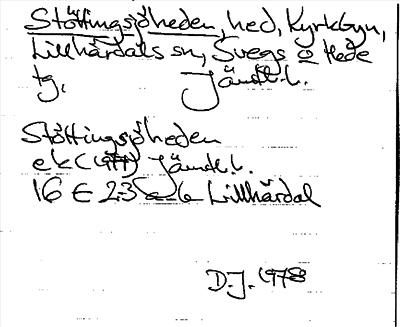 Stöttingsjöheden, hed, Kyrkbyn,
Lillhärdals sn, Svegs o Hede
tg, Jämtl.l.
Stöttingsjöheden
ek (1977) Jämtl.l.
16 E 23 a-b Lillhärdal
D.J. 1978